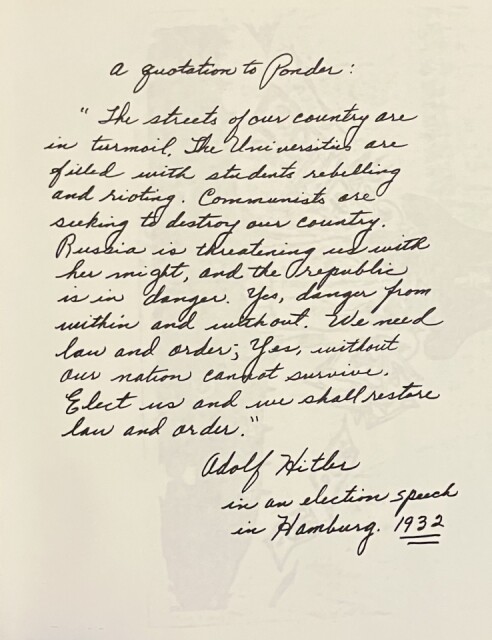 A quotation to Ponder:
"The streets of our country are
in turmoil. The Universities are
filled with students rebelling
and rioting. Communists are
seeking to destroy our country.
Russia is threatening us with
her might, and the republic
is in danger. Yes, danger from
within and without. We need
law and order; Yes, without
our nation cannot survive.
Elect us and we shall restore
law and order."
Adolf Hitler
in an election speech
in Hamburg. 1932